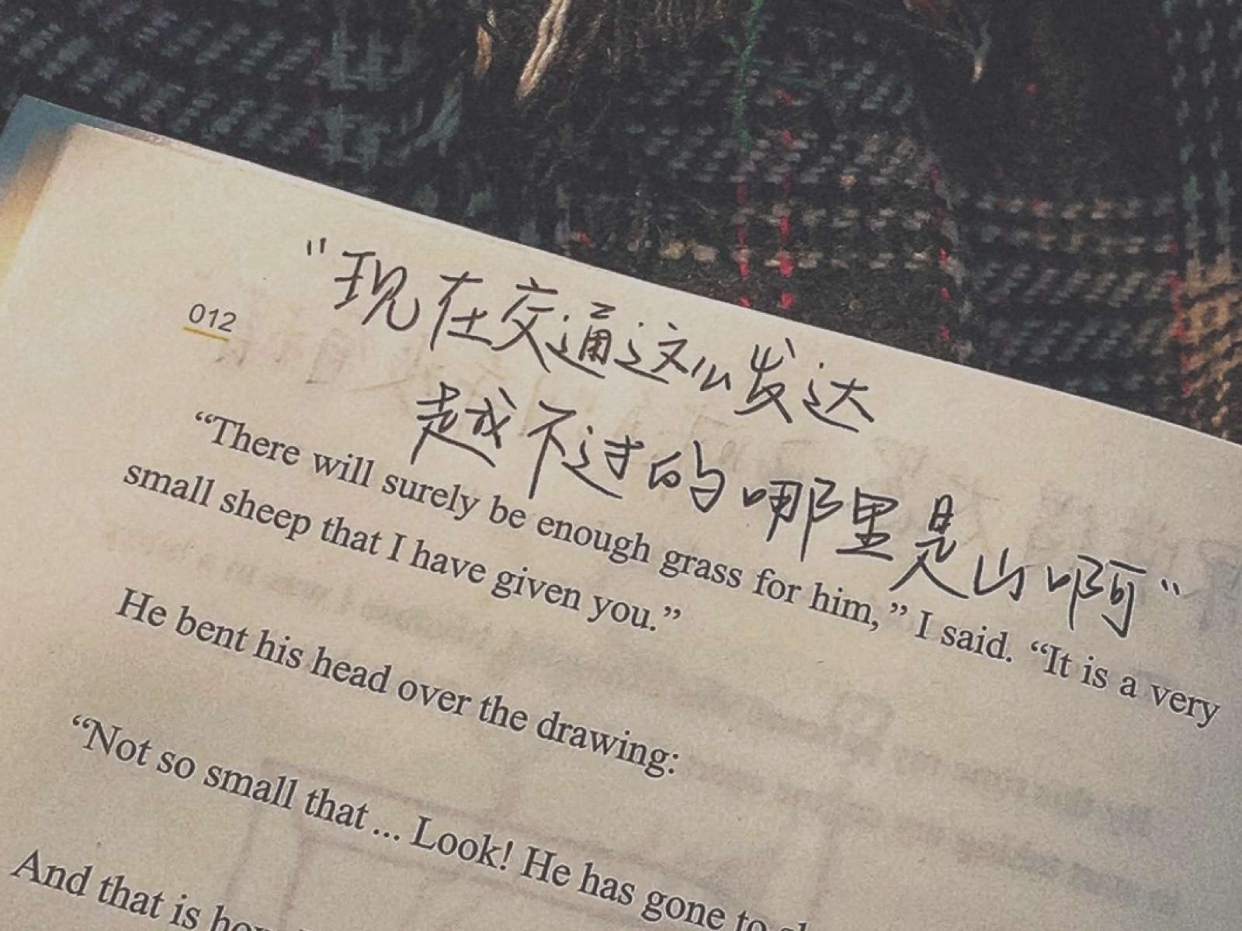 "现在交通这么发达
012
越不过的哪里是山啊"
“There will surely be enough grass for him,” I said. “It is a very
small sheep that I have given you.”
He bent his head over the drawing:
“Not so small that ... Look! He has gone to
And that is